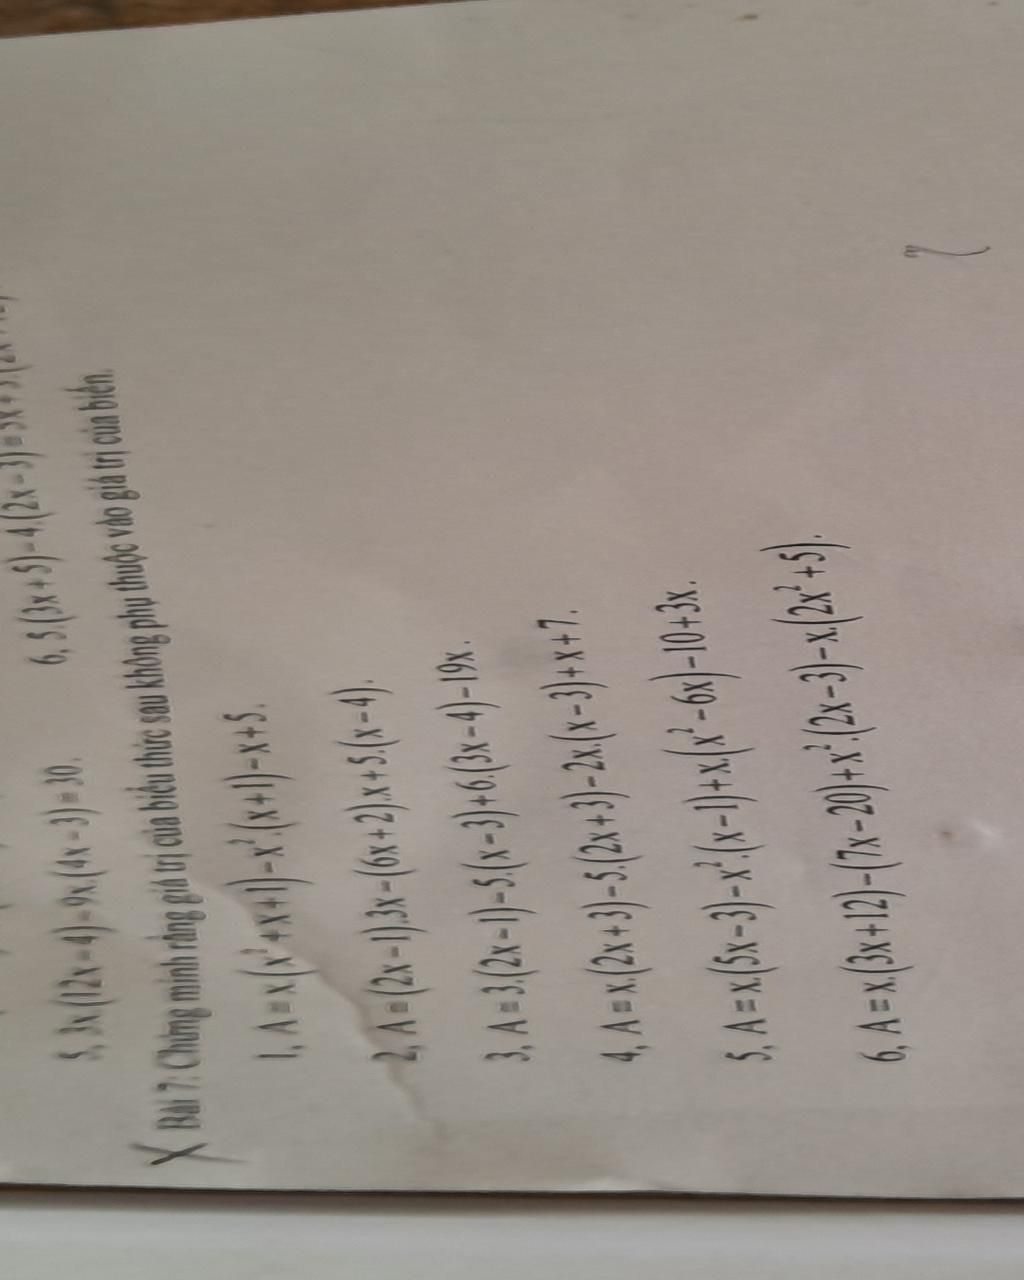 5, 3x.(12x-4)-9x.(4x-3)=30. 6, 5.(3x+5)-4.(2x-3)=5x+3.(2x
X Bài 7: Chứng minh rằng giá trị của biểu thức sau không phụ thuộc vào giá trị của biến.
1, A = x.(x²+x+1)-x².(x+1)-x+5.
2, A = (2x-1).3x-(6x+2).x+5.(x-4).
3, A = 3.(2x-1)-5.(x-3)+6.(3x-4)-19x.
4, A = x.(2x+3)-5.(2x+3)-2x.(x-3)+x+7.
5, A = x.(5x-3)-x².(x-1)+x.(x²-6x)-10+3x.
6, A = x.(3x+12)-(7x-20)+x².(2x-3)-x.(2x²+5).